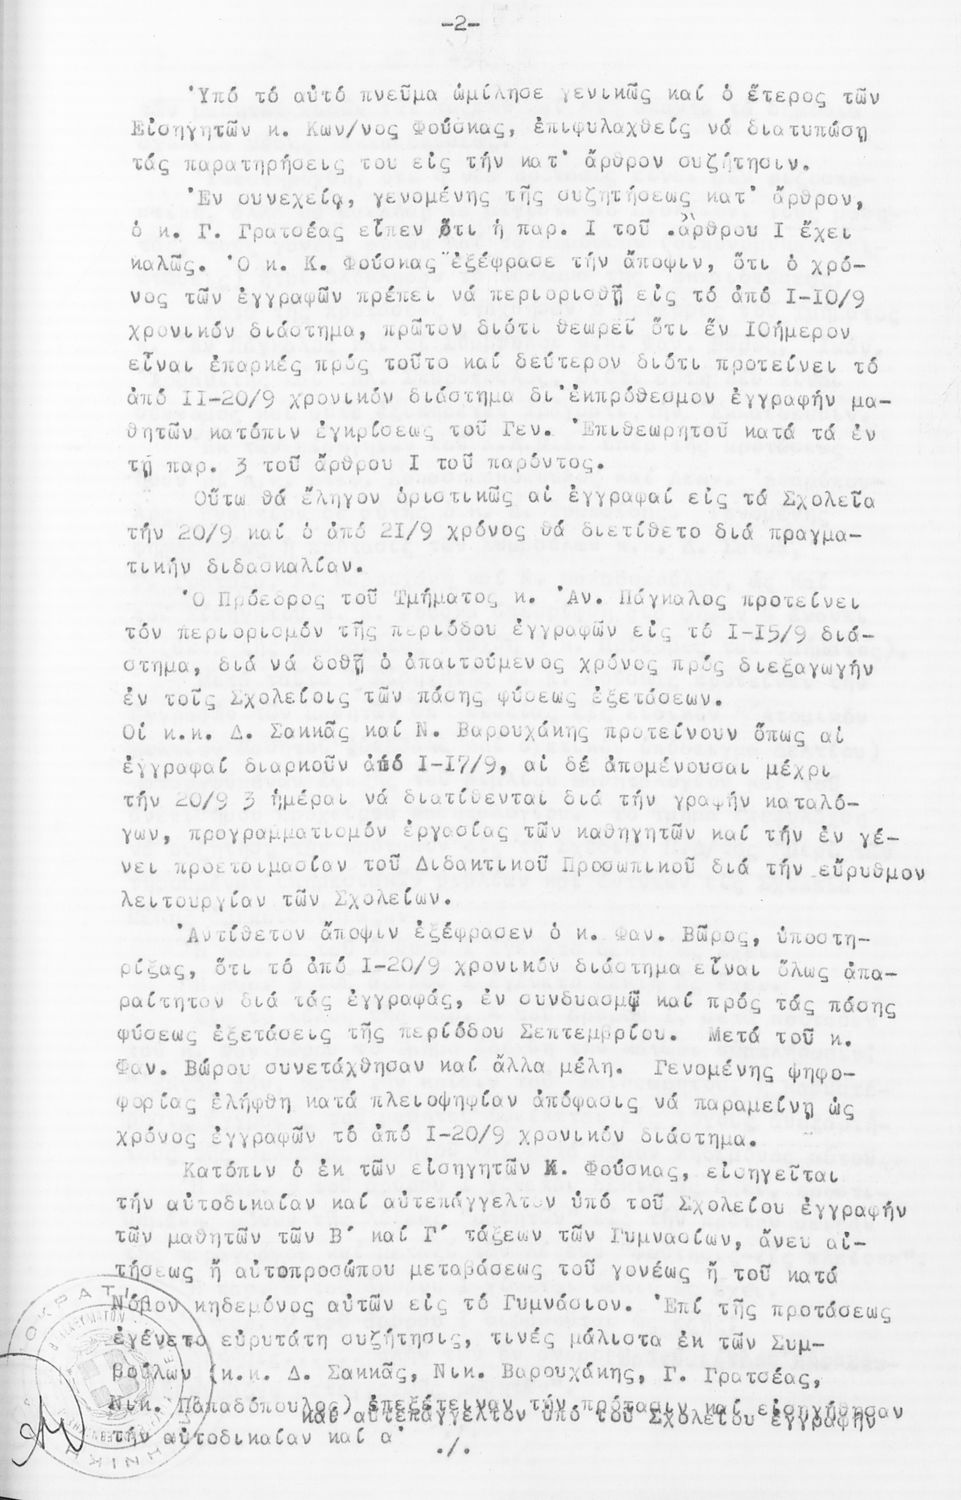 -2-
Ὑπό τό αὐτό πνεῦμα ὡμίλησε γενικῶς καί ὁ ἕτερος τῶν
Εἰσηγητῶν κ. Κων/νος Φούσκας, ἐπιφυλαχθείς νά διατυπώσῃ
τάς παρατηρήσεις του εἰς τήν κατ' ἄρθρον συζήτησιν.
Ἐν συνεχείᾳ, γενομένης τῆς συζητήσεως κατ' ἄρθρον,
ὁ κ. Γ. Γρατσέας εἶπεν ὅτι ἡ παρ. Ι τοῦ ἄρθρου Ι ἔχει
καλῶς. Ὁ κ. Κ. Φούσκας ἐξέφρασε τήν ἄποψιν, ὅτι ὁ χρό-
νος τῶν ἐγγραφῶν πρέπει νά περιορισθῇ εἰς τό ἀπό Ι-Ι0/9
χρονικόν διάστημα, πρῶτον διότι θεωρεῖ ὅτι ἕν Ι0ήμερον
εἶναι ἐπαρκές πρός τοῦτο καί δεύτερον διότι προτείνει τό
ἀπό ΙΙ-20/9 χρονικόν διάστημα δι' ἐκπρόθεσμον ἐγγραφήν μα-
θητῶν κατόπιν ἐγκρίσεως τοῦ Γεν. Ἐπιθεωρητοῦ κατά τά ἐν
τῇ παρ. 3 τοῦ ἄρθρου Ι τοῦ παρόντος.
Οὕτω θά ἔληγον ὁριστικῶς αἱ ἐγγραφαί εἰς τά Σχολεῖα
τήν 20/9 καί ὁ ἀπό 21/9 χρόνος θά διετίθετο διά πραγμα-
τικήν διδασκαλίαν.
Ὁ Πρόεδρος τοῦ Τμήματος κ. Ἀν. Πάγκαλος προτείνει
τόν περιορισμόν τῆς περιόδου ἐγγραφῶν εἰς τό Ι-Ι5/9 διά-
στημα, διά νά δοθῇ ὁ ἀπαιτούμενος χρόνος πρός διεξαγωγήν
ἐν τοῖς Σχολείοις τῶν πάσης φύσεως ἐξετάσεων.
Οἱ κ.κ. Δ. Σακκᾶς καί Ν. Βαρουχάκης προτείνουν ὅπως αἱ
ἐγγραφαί διαρκοῦν ἀπό Ι-Ι7/9, αἱ δέ ἀπομένουσαι μέχρι
τήν 20/9 3 ἡμέραι νά διατίθενται διά τήν γραφήν καταλό-
γων, προγραμματισμόν ἐργασίας τῶν καθηγητῶν καί τήν ἐν γέ-
νει προετοιμασίαν τοῦ Διδακτικοῦ Προσωπικοῦ διά τήν εὔρυθμον
λειτουργίαν τῶν Σχολείων.
Ἀντίθετον ἄποψιν ἐξέφρασεν ὁ κ. Φαν. Βῶρος, ὑποστη-
ρίξας, ὅτι τό ἀπό Ι-20/9 χρονικόν διάστημα εἶναι ὅλως ἀπα-
ραίτητον διά τάς ἐγγραφάς, ἐν συνδυασμῷ καί πρός τάς πάσης
φύσεως ἐξετάσεις τῆς περίόδου Σεπτεμβρίου. Μετά τοῦ κ.
Φαν. Βώρου συνετάχθησαν καί ἄλλα μέλη. Γενομένης ψηφο-
φορίας ἐλήφθη κατά πλειοψηφίαν ἀπόφασις νά παραμείνῃ ὡς
χρόνος ἐγγραφῶν τό ἀπό Ι-20/9 χρονικόν διάστημα.
Κατόπιν ὁ ἐκ τῶν εἰσηγητῶν Κ. Φούσκας, εἰσηγεῖται
τήν αὐτοδικαίαν καί αὐτεπάγγελτον ὑπό τοῦ Σχολείου ἐγγραφήν
τῶν μαθητῶν τῶν Β΄ καί Γ΄ τάξεων τῶν Γυμνασίων, ἄνευ αἰ-
τήσεως ἤ αὐτοπροσώπου μεταβάσεως τοῦ γονέως ἤ τοῦ κατά
Νόμον κηδεμόνος αὐτῶν εἰς τό Γυμνάσιον. Ἐπί τῆς προτάσεως
ἐγένετο εὐρυτάτη συζήτησις, τινές μάλιστα ἐκ τῶν Συμ-
βούλων (κ.κ. Δ. Σακκᾶς, Νικ. Βαρουχάκης, Γ. Γρατσέας,
Νικ. Παπαδόπουλος) ἐπεξέτειναν τήν πρότασιν καί εἰσηγήθησαν
καί αὐτεπάγγελτον ὑπό τοῦ Σχολείου ἐγγραφήν
τήν αὐτοδικαίαν καί α'
./.